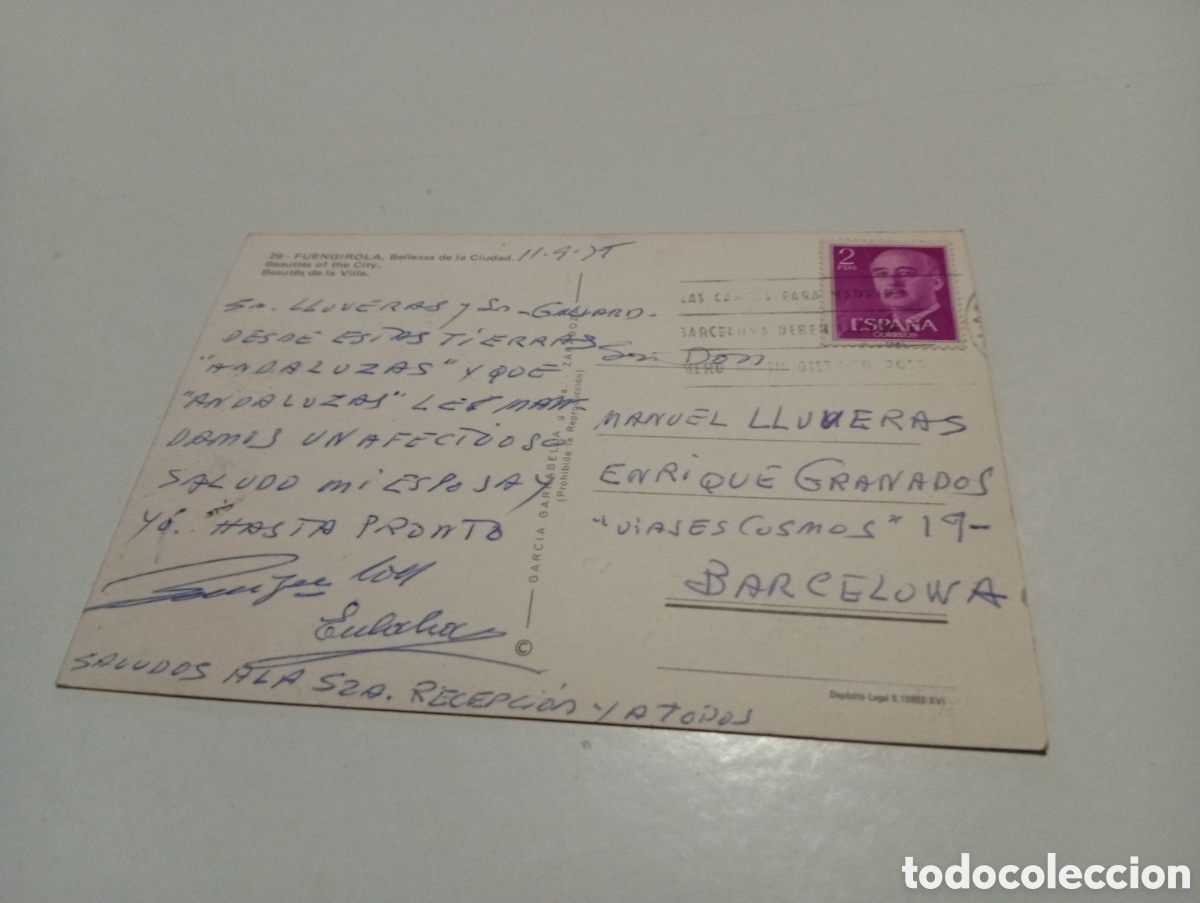 29 - FUENGIROLA. Bellezas de la Ciudad.
Beauties of the City.
Beautés de la Ville.
11-9-75
Sr. LLUVERAS Y Sr - GALLARD -
DESDE ESTAS TIERRAS
"ANDALUZAS" Y QUE
"ANDALUZAS" LES MAN
DAMOS UN AFECTUOSO
SALUDO MI ESPOSA Y
YÓ. HASTA PRONTO
Eulalia
SALUDOS A LA SRA. RECEPCIÓN Y A TODOS
GARCIA GARRABELLA y Cía. - ZARAGOZA
(Prohibida la Reproducción)
©
2
PTAS
ESPAÑA
CORREOS
LAS CARTAS PARA MADRID
BARCELONA DEBEN
NUMERO DISTRITO
Sr. Don
MANUEL LLUVERAS
ENRIQUE GRANADOS
"VIAJES COSMOS" 19-
BARCELONA
Depósito Legal B.10902-XVI
todocoleccion